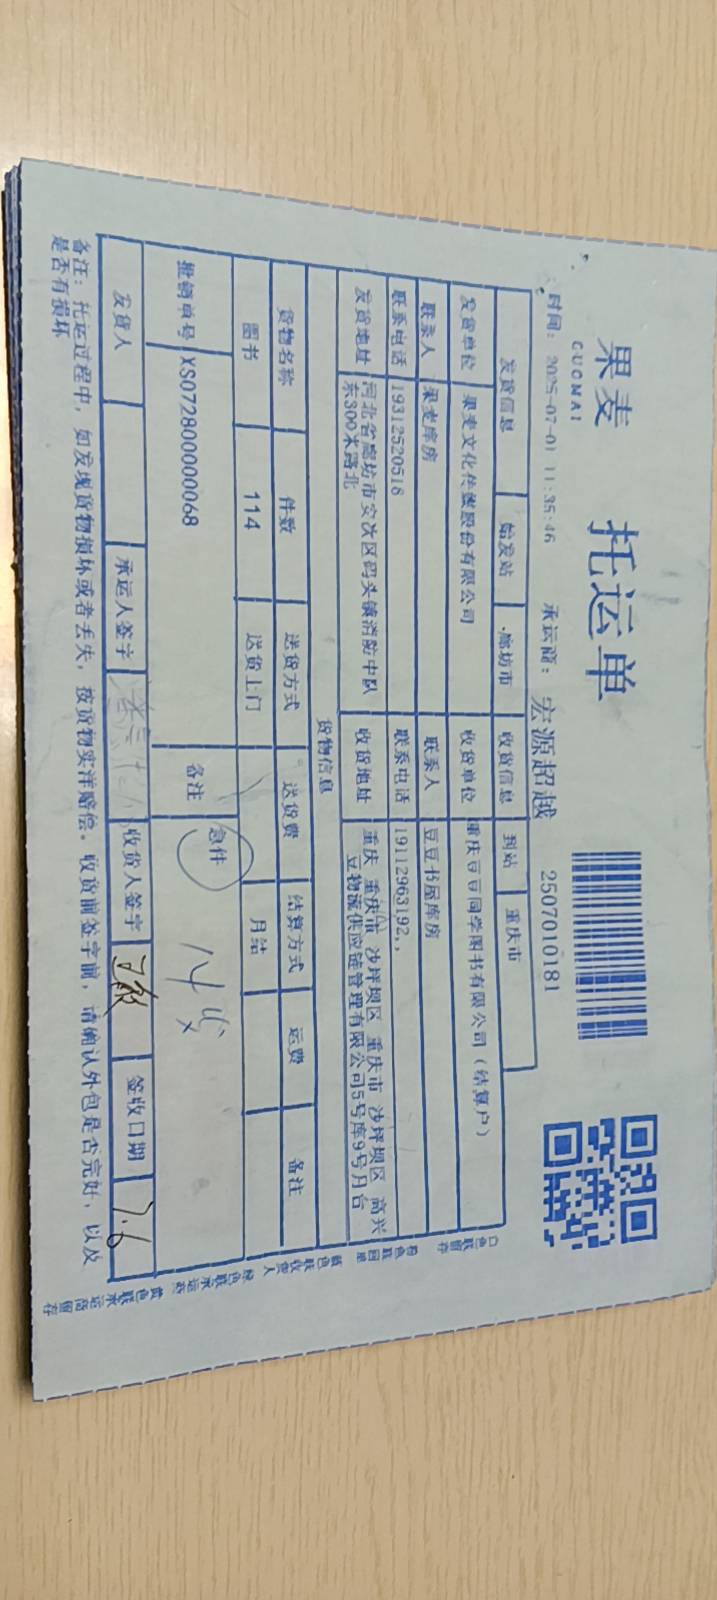 果麦
GUOMAI
托运单
时间: 2025-07-01 11:35:46 承运商: 宏源超越 2507010181
发货信息 始发站 廊坊市 收货信息 到站 重庆市
发货单位 果麦文化传媒股份有限公司 收货单位 重庆豆豆同学图书有限公司(结算户)
联系人 果麦库房 联系人 豆豆书屋库房
联系电话 19312520518 联系电话 19112963192,,
发货地址 河北省廊坊市安次区码头镇消防中队东300米路北 收货地址 重庆 重庆市 沙坪坝区 重庆市 沙坪坝区 高兴豆物流供应链管理有限公司5号库9号月台
货物信息
货物名称 件数 送货方式 送货费 结算方式 运费 备注
图书 114 送货上门 月结
批销单号 XS07280000068 备注 急件
发货人 承运人签字 收货人签字 签收日期 7.6
备注: 托运过程中, 如发现货物损坏或者丢失, 按货物实洋赔偿。收货前签字前, 请确认外包是否完好, 以及
是否有损坏
白色联留存
蓝色联收货人
绿色联承运商
黄色联承运商留存